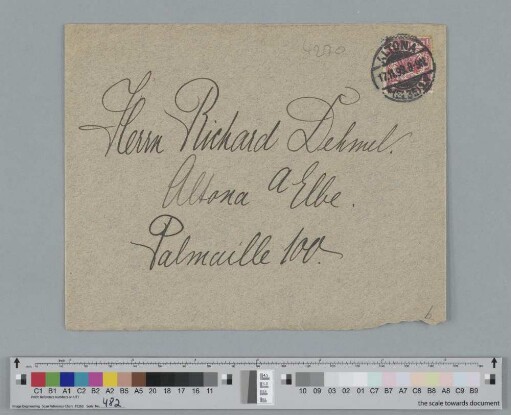 4200
ALTONA
17.11.98.8-9N.
Herrn Richard Dehmel.
Altona a Elbe.
Palmaille 100.
b
C1 B1 A1 C2 B2 A2 B5 A5 20 18 17 16 11
10 09 03 02 01 C7 B7 A7 C8 B8 A8 C9 B9
482
the scale towards document